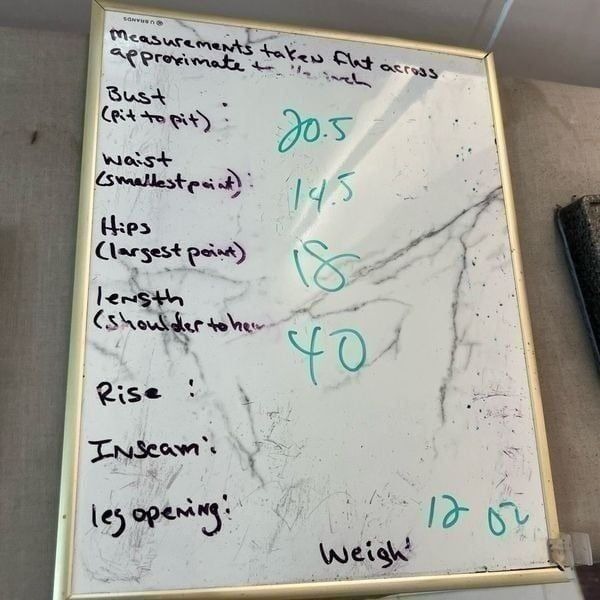 U BRANDS
Measurements taken flat across
approximate + inch
Bust
(pit to pit) : 20.5
waist
(smallest point) : 14.5
Hips
(largest point) 18
length
(shoulder to hem 40
Rise :
INseam :
leg opening :
12 oz
Weigh